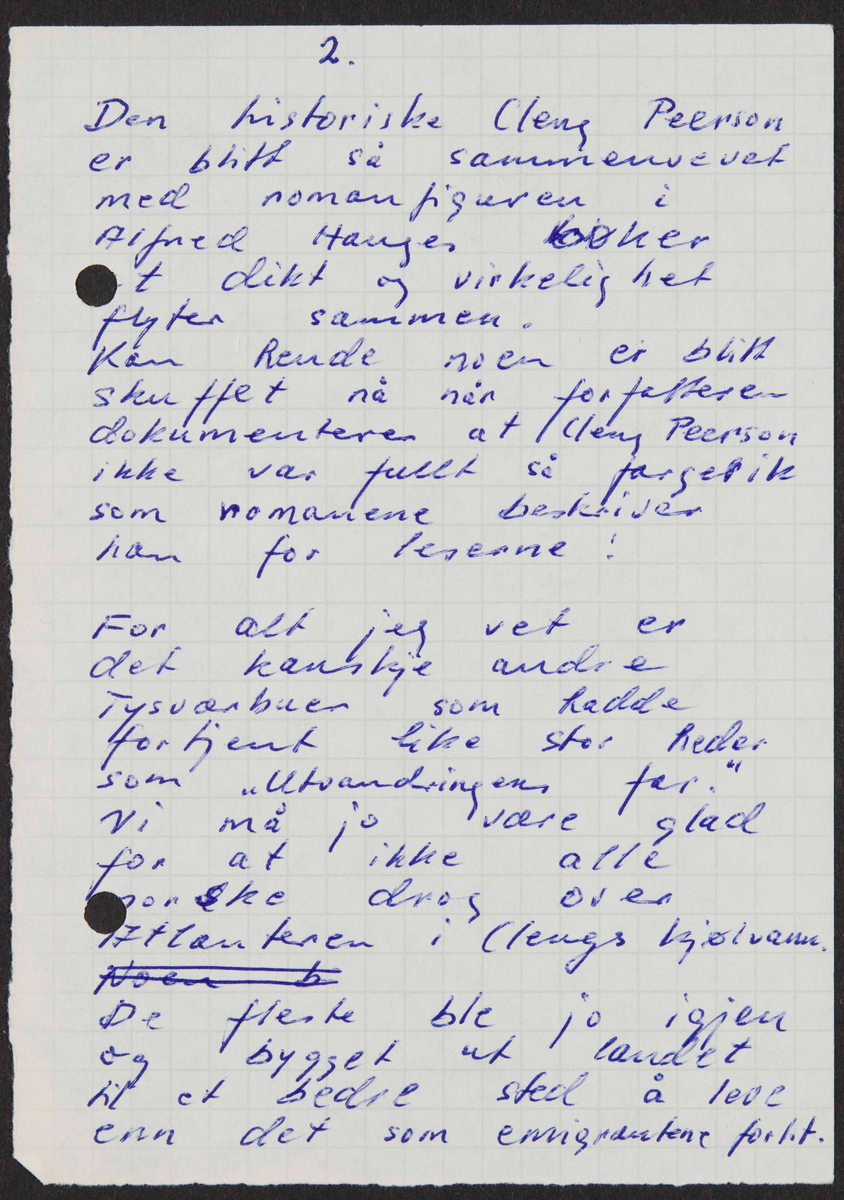 2.
Den historiske Cleng Peerson
er blitt så sammenvevet
med romanfiguren i
Alfred Hauges bøker
t dikt og virkelighet
flyter sammen.
Kan hende noen er blitt
skuffet nå når forfatteren
dokumenterer at Cleng Peerson
ikke var fullt så fargerik
som romanene beskriver
han for leserne!
For alt jeg vet er
det kanskje andre
Tysværbuer som hadde
fortjent like stor heder
som „Utvandringens far."
Vi må jo være glad
for at ikke alle
norske drog over
Atlanteren i Clengs kjølvann.
Noen b
De fleste ble jo igjen
og bygget ut landet
til et bedre sted å leve
enn det som emigrantene forlot.